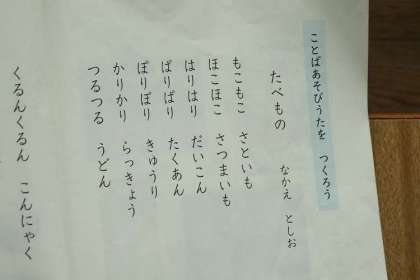 ことばあそびうたを つくろう
たべもの
なかえ としお
もこもこ さといも
ほこほこ さつまいも
はりはり だいこん
ぱりぱり たくあん
ぽりぽり きゅうり
かりかり らっきょう
つるつる うどん
くるんくるん こんにゃく